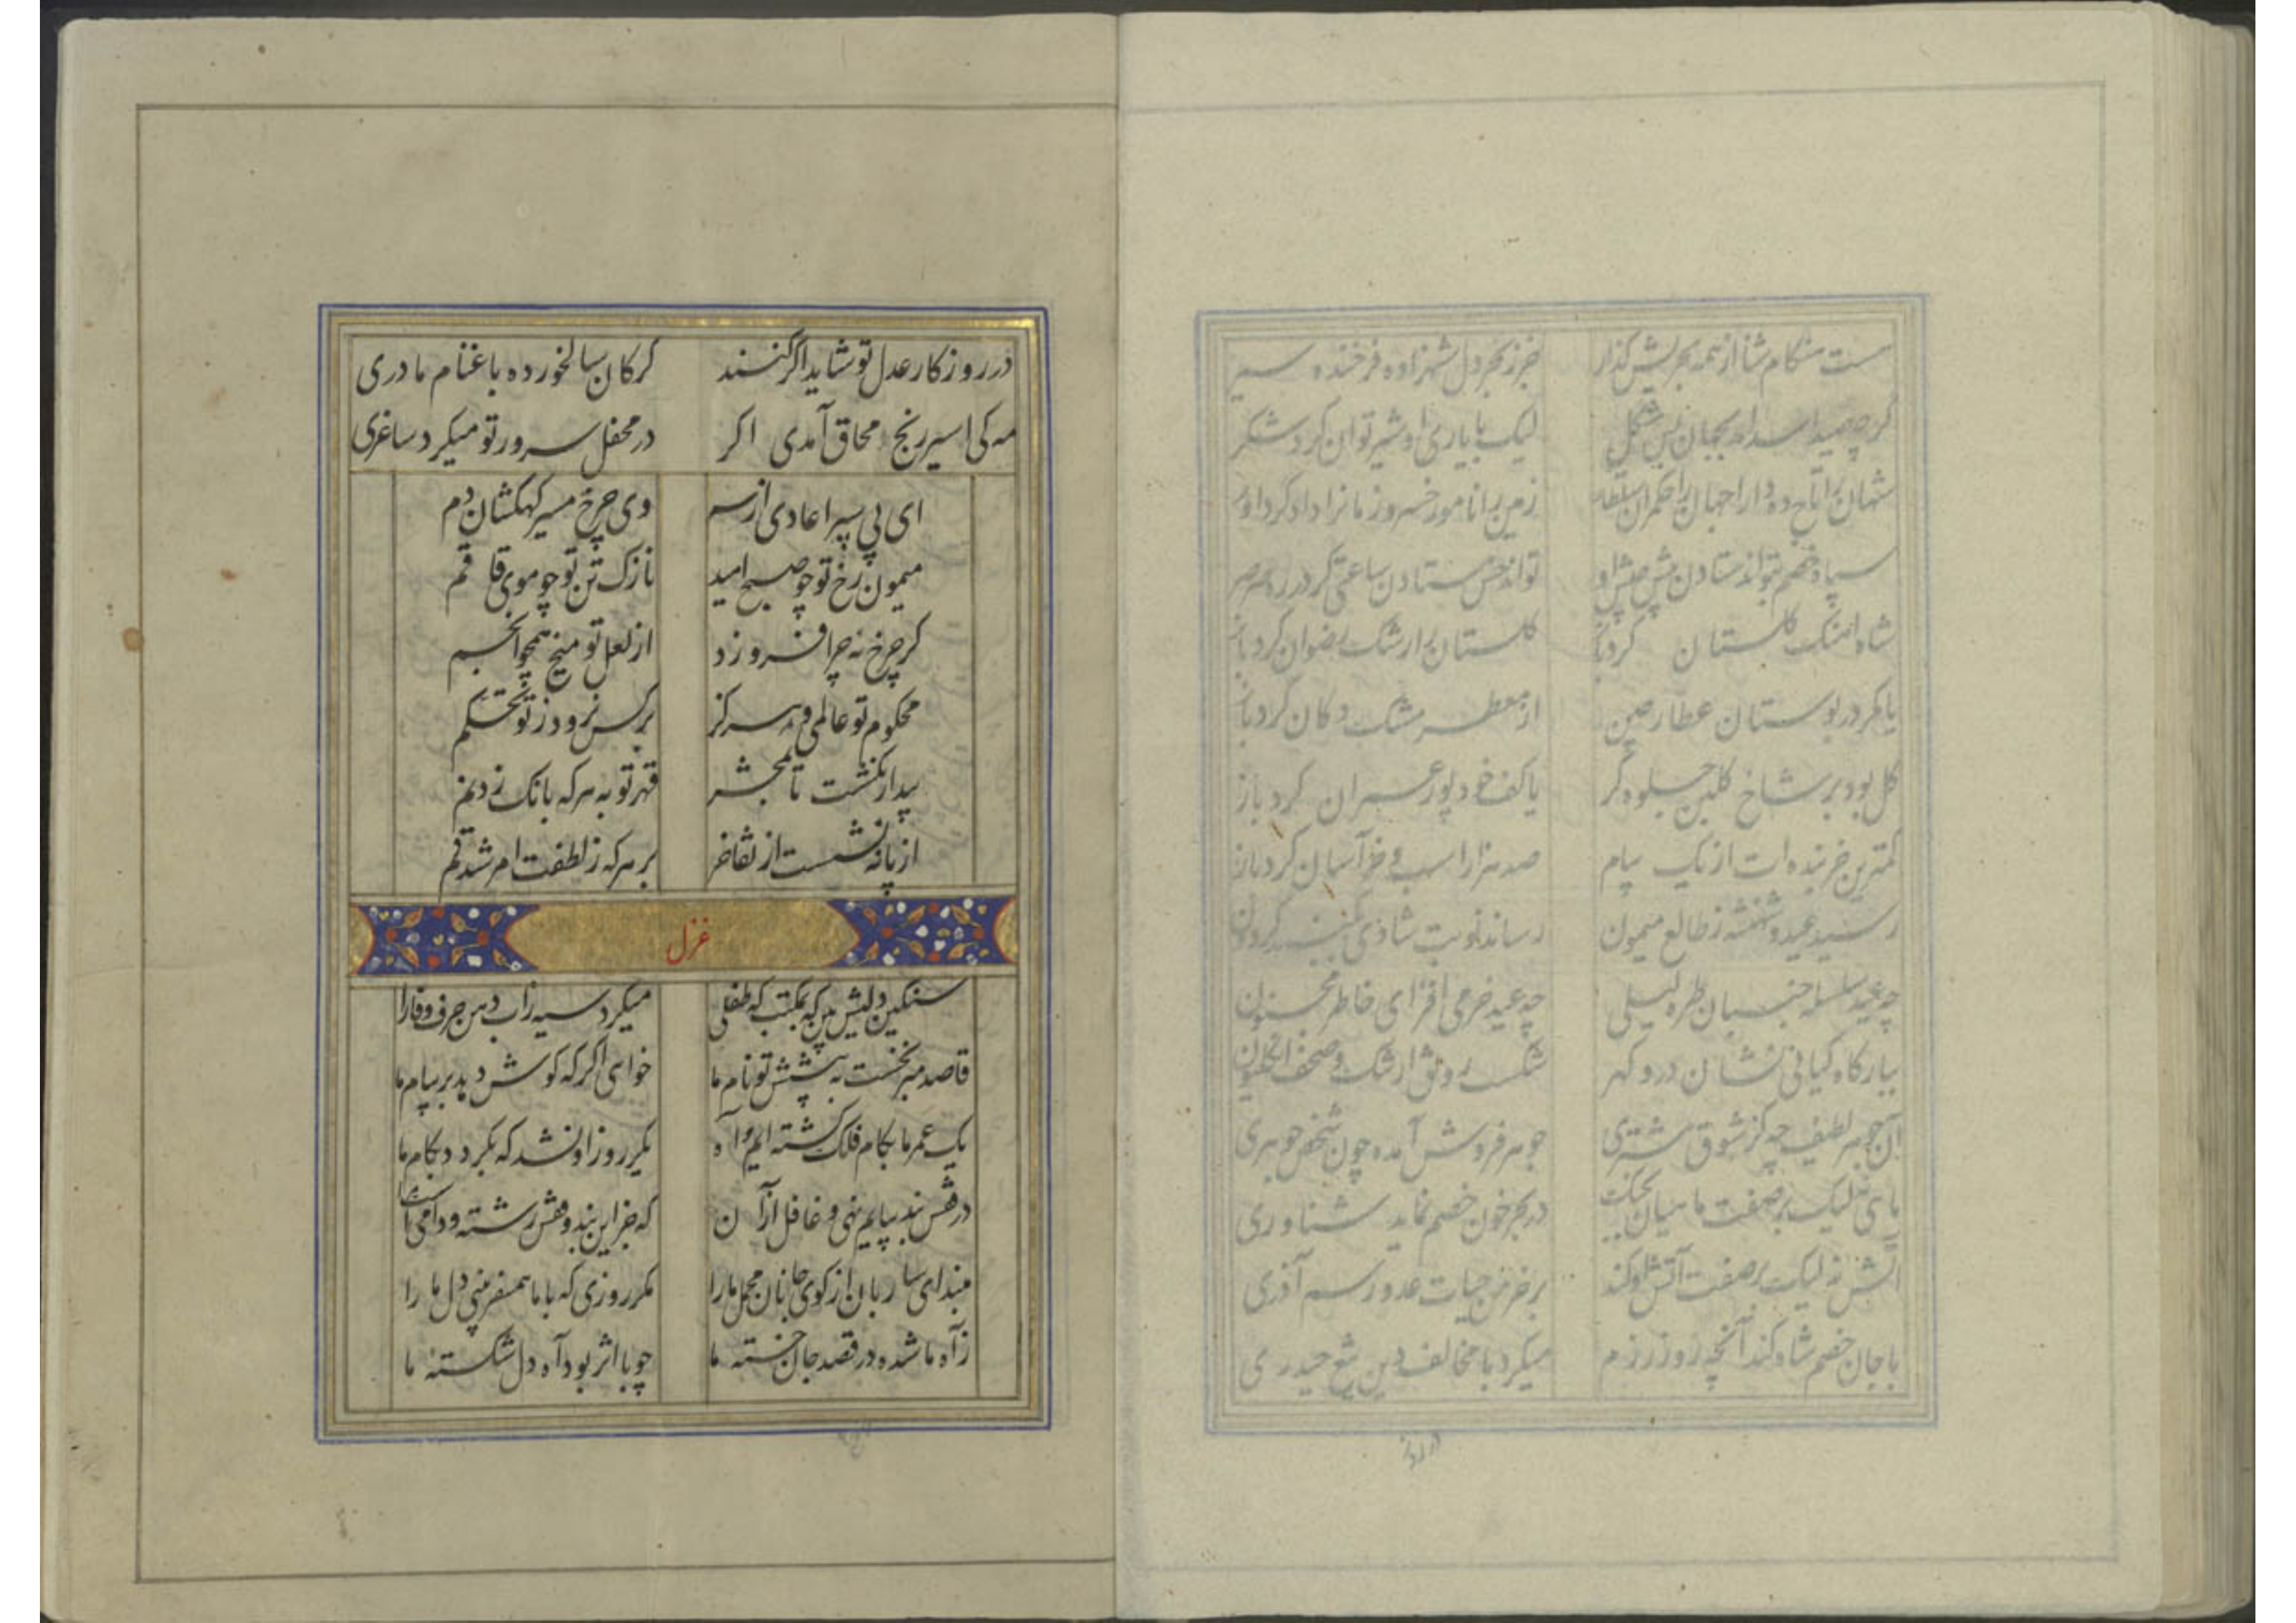 ست هنگام شنا از همه بحریش گذار جز ز بحر دل شهزاده فرخنده سیر
گرچه صید اسد اندر بجهان بس مشکل لیک با یاری او شیر توان کرد شکر
شهان را تاج ده دارا جهان را حکمران سلطان زمین را نامور خسرو زمانرا دادگر داور
سپاه خصم بتواند ستادن پیش جیش او تواند خس ستادن ساعتی گر در ره صرصر
شاه آهنگ گلستان کرد باز گلستان را رشک رضوان کرد باز
یا مگر در بوستان عطار چین از معطر مشک دکان کرد باز
گل بود بر شاخ گلبن جلوه گر یا کف خود پور عمران کرد باز
کمترین خربنده ات از یک پیام صد هزار اسب و خر آسان کرد باز
رسید عید و شهنشه ز طالع میمون رساند نوبت شادی بگنبد گردون
چه عید سلسله جنبان طره لیلی چه عید خرمی افزای خاطر مجنون
ببارگاه کیانی نشان در و گهر شکست رونق ارشنگ و صحف انگلیون
آن جوهر لطیف چه کز شوق مشتری جوهر فروش آمده چون شخص جوهری
ماهی نه لیک بر صفت ماهیان در بحر خون خصم نماید شناوری
آتش نه لیک بر صفت آتش او کند بر خرمن حیات عدو رسم آذری
با جان خصم شاه کند آنچه روز رزم میکرد با مخالف دین تیغ حیدری
در روز
در روزکار عدل تو شاید اگر کنند کرکان سالخورده باغنام مادری
مه کی اسیر رنج محاق آمدی اکر در محفل سرور تو میکرد ساغری
ای پی سپر اعادی از سم وی چرخ مسیر کهکشان دم
میمون رخ تو چو صبح امید نازک تن تو چو موی قاقم
کر چرخ نه چرا فروزد از لعل تو میخ همچو انجم
محکوم تو عالمی و هرکز بر کس نرود ز تو تحکم
بیدار نکشت تا بمحشر قهر تو به هر که بانک زد نم
از پا ننشست از تفاخر بر هر که ز لطفت امر شد قم
غزل
سنکین دلیش بین که بمکتب که طفلی میکرد سیه زاب دهن حرف وفا را
قاصد مبر نخست به پیشش تو نام ما خواهی اکر که کوش دهد بر پیام ما
یک عمر ما بکام فلک کشته ایم و آه یکروز او نشد که بکردد بکام ما
در قفس بند بپایم نهی و غافل از آن که جز این بند و قفس رشته و دامی است
مبند ای ساربان از کوی جانان محمل ما را مکر روزی که با ما همسفر بینی دل ما را
ز آه ما شده در قصد جان خسته ما چو با اثر بود آه دل شکسته ما